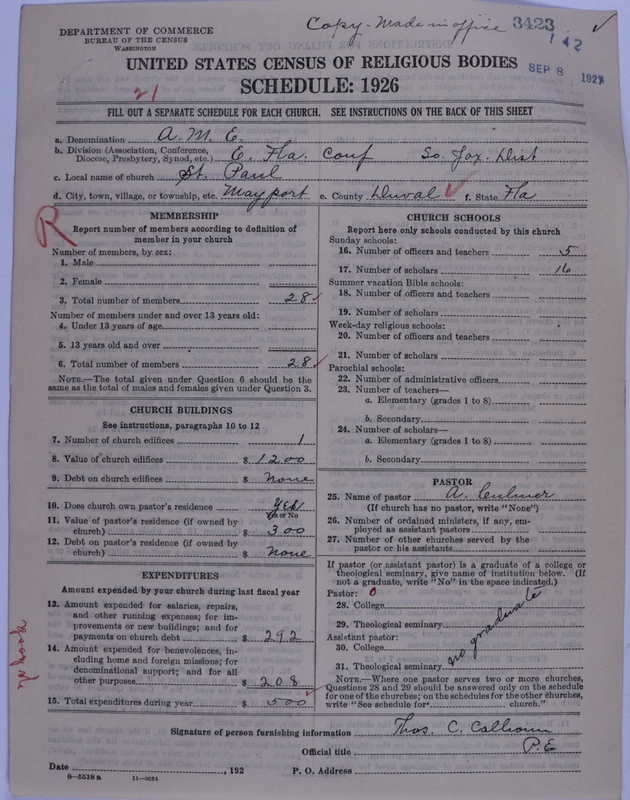 Copy - Made in office 3423
142
DEPARTMENT OF COMMERCE
BUREAU OF THE CENSUS
WASHINGTON
UNITED STATES CENSUS OF RELIGIOUS BODIES
SEP 8 1927
SCHEDULE: 1926
21
FILL OUT A SEPARATE SCHEDULE FOR EACH CHURCH. SEE INSTRUCTIONS ON THE BACK OF THIS SHEET
a. Denomination A. M. E.
b. Division (Association, Conference, Diocese, Presbytery, Synod, etc.) E. Fla. Conf So. Jax. Dist
c. Local name of church St. Paul
d. City, town, village, or township, etc. Mayport e. County Duval f. State Fla
R
MEMBERSHIP
Report number of members according to definition of
member in your church
Number of members, by sex:
1. Male
2. Female
3. Total number of members 28
Number of members under and over 13 years old:
4. Under 13 years of age
5. 13 years old and over
6. Total number of members 28
NOTE.—The total given under Question 6 should be the
same as the total of males and females given under Question 3.
CHURCH BUILDINGS
See instructions, paragraphs 10 to 12
7. Number of church edifices 1
8. Value of church edifices $ 1200
9. Debt on church edifices $ None
10. Does church own pastor's residence Yes
Yes or No
11. Value of pastor's residence (if owned by
church) $ 300
12. Debt on pastor's residence (if owned by
church) $ None
EXPENDITURES
Amount expended by your church during last fiscal year
13. Amount expended for salaries, repairs,
and other running expenses; for im-
provements or new buildings; and for
payments on church debt $ 292
14. Amount expended for benevolences, in-
cluding home and foreign missions; for
denominational support; and for all
other purposes $ 208
15. Total expenditures during year $ 500
Yr book
CHURCH SCHOOLS
Report here only schools conducted by this church
Sunday schools:
16. Number of officers and teachers 5
17. Number of scholars 16
Summer vacation Bible schools:
18. Number of officers and teachers
19. Number of scholars
Week-day religious schools:
20. Number of officers and teachers
21. Number of scholars
Parochial schools:
22. Number of administrative officers
23. Number of teachers—
a. Elementary (grades 1 to 8)
b. Secondary
24. Number of scholars—
a. Elementary (grades 1 to 8)
b. Secondary
PASTOR
25. Name of pastor A. Culmer
(If church has no pastor, write "None")
26. Number of ordained ministers, if any, em-
ployed as assistant pastors
27. Number of other churches served by the
pastor or his assistants
If pastor (or assistant pastor) is a graduate of a college or
theological seminary, give name of institution below. (If
not a graduate, write "No" in the space indicated.)
Pastor: 0
28. College
29. Theological seminary
Assistant pastor:
30. College
31. Theological seminary
no graduate
NOTE.—Where one pastor serves two or more churches,
Questions 28 and 29 should be answered only on the schedule
for one of the churches; on the schedules for the other churches,
write "See schedule for church."
Signature of person furnishing information Thos. C. Calhoun
Official title P.E
Date , 192 P. O. Address
8-5518 a 11-9084